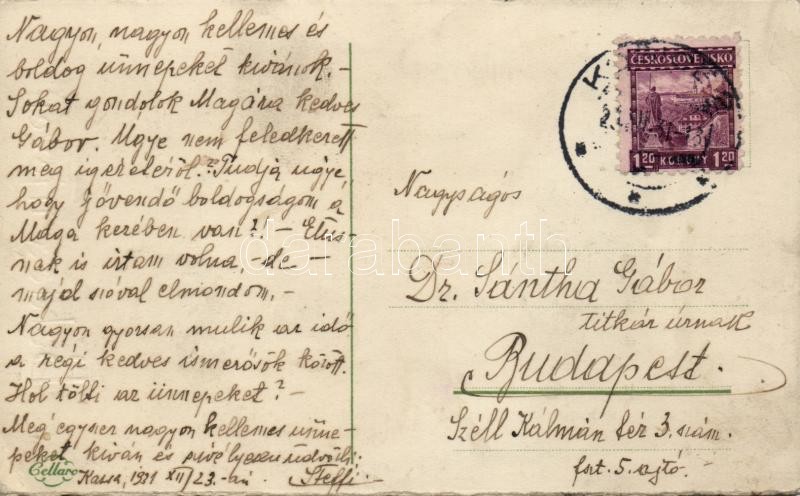 Nagyon, nagyon kellemes és
boldog ünnepeket kivánok.-
Sokat gondolok Magára kedves
Gábor. Ugye nem feledkezett
meg igeretéről? Tudja ugye
hogy jövendő boldogságom a
Maga kezében van?! - Etus-
nak is irtam volna, - de -
majd szóval elmondom. -
Nagyon gyorsan mulik az idő
a régi kedves ismerősök között.
Hol tölti az ünnepeket? -
Még egyszer nagyon kellemes ünne-
peket kiván és szivélyesen üdvözli:
Kassa, 1931 XII/23.-án Steffi.-
Cellaro
ČESKOSLOVENSKO
1.20 KORUNY 1.20
Nagyságos
Dr. Sántha Gábor
titkár úrnak
Budapest.
Széll Kálmán tér 3. szám.
fszt. 5. ajtó.
darabanth